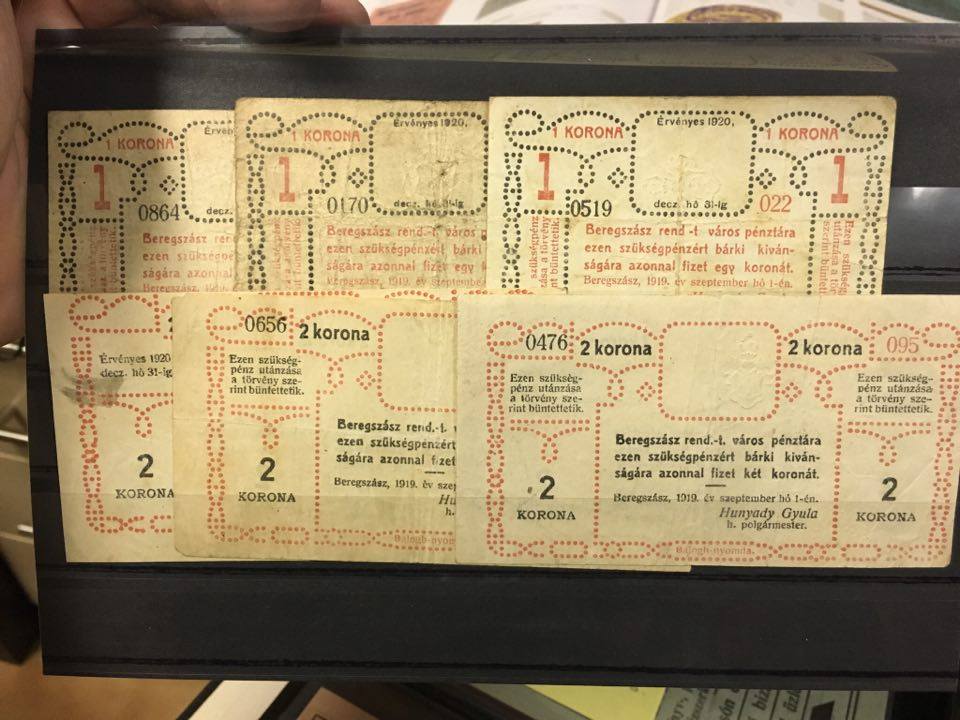 1 KORONA
Érvén
1
0864
decz.
Beregszász ren
ezen szükségpé
ságára azonnal
Beregszász, 1919.
büntettetik.
1 KORONA
Érvényes 1920,
1
0170
decz. hó 31-ig
Beregszász rend -t. város p
ezen szükségpénzért bárki
ságára azonnal fizet egy k
Beregszász, 1919. év szeptember
1 KORONA
Érvényes 1920,
1 KORONA
1
1
0519
decz. hó 31-ig
022
szükségpénz
zása a törvény
nt büntettetik.
Beregszász rend -t. város pénztára
ezen szükségpénzért bárki kiván-
ságára azonnal fizet egy koronát.
Beregszász, 1919. év szeptember hó 1-én.
Ezen szükség
utánzása a tör
szerint büntet
Érvényes 1920
decz. hó 31-ig
2
KORONA
0656
2 korona
Ezen szükség-
pénz utánzása
a törvény sze-
rint büntettetik.
2
KORONA
Beregszász rend.-t.
ezen szükségpénzért
ságára azonnal fizet
Beregszász, 1919. év szep
Hu
h.
Balogh-nyom
0476
2 korona
2 korona
095
Ezen szükség-
pénz utánzása
a törvény sze-
rint büntettetik.
Ezen szükség-
pénz utánzása
a törvény sze-
rint büntettetik.
Beregszász rend.-t. város pénztára
ezen szükségpénzért bárki kiván-
ságára azonnal fizet két koronát.
Beregszász, 1919. év szeptember hó 1-én.
Hunyady Gyula
h. polgármester.
2
KORONA
2
KORONA
Balogh-nyomda.